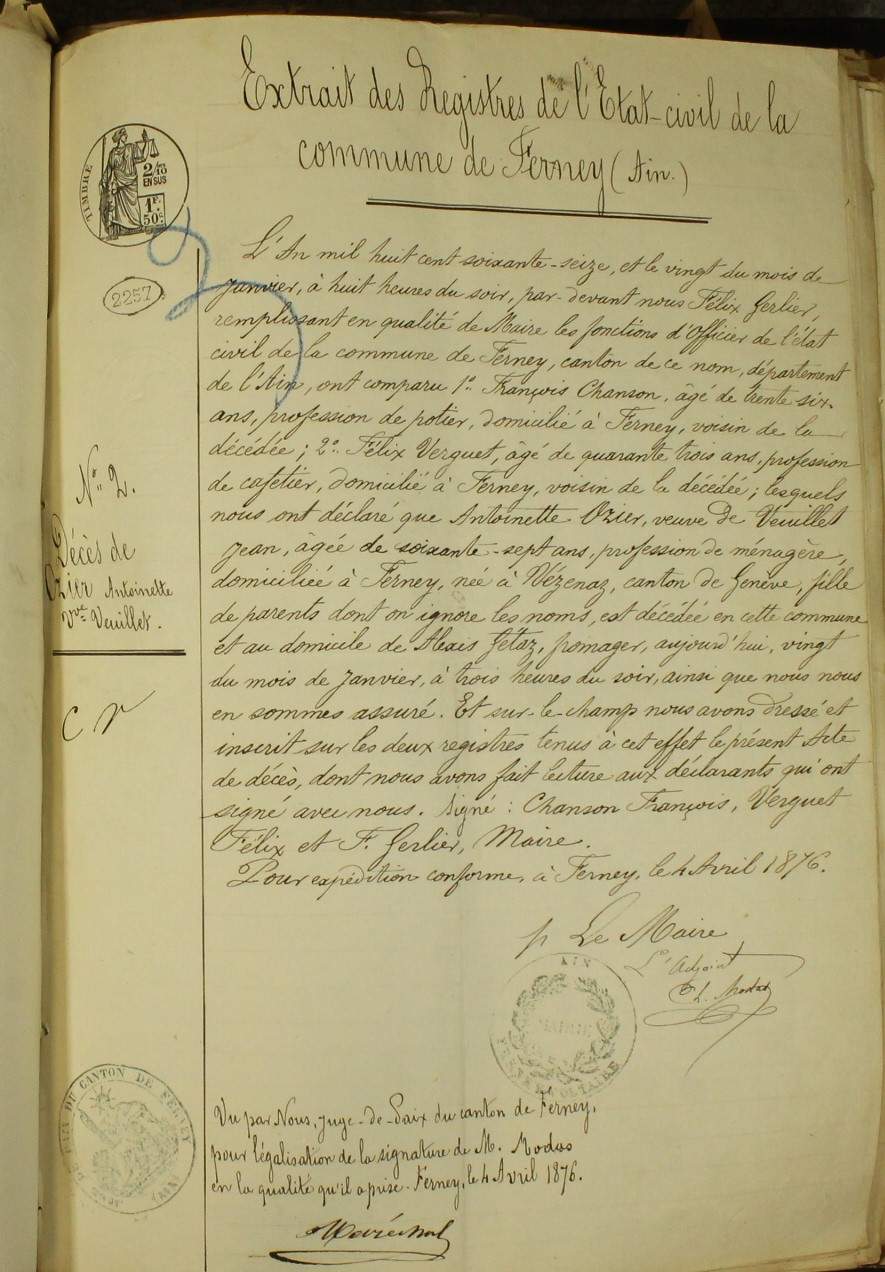 Extrait des Registres de l'Etat-civil de la
commune de Ferney (Ain.)
TIMBRE
2/10
EN SUS
1F.
50c.
2257
L'An mil huit cent soixante-seize, et le vingt du mois de
Janvier, à huit heures du soir, par-devant nous Félix Gerlier,
remplissant en qualité de Maire les fonctions d'Officier de l'état
civil de la commune de Ferney, canton de ce nom, département
de l'Ain, ont comparu 1° François Chanson, âgé de trente six
ans, profession de potier, domicilié à Ferney, voisin de la
décédée; 2° Félix Verguet, âgé de quarante trois ans, profession
de cafetier, domicilié à Ferney, voisin de la décédée; lesquels
nous ont déclaré que Antoinette Ozier, veuve de Veuillet
Jean, âgée de soixante-sept ans, profession de ménagère,
domiciliée à Ferney, née à Vézenaz, canton de Genève, fille
de parents dont on ignore les noms, est décédée en cette commune
et au domicile de Alexis Gétaz, fromager, aujourd'hui, vingt
du mois de Janvier, à trois heures du soir, ainsi que nous nous
en sommes assuré. Et sur-le-champ nous avons dressé et
inscrit sur les deux registres tenus à cet effet le présent Acte
de décès, dont nous avons fait lecture aux déclarants qui ont
signé avec nous. Signé : Chanson François, Verguet
Félix et F. Gerlier, Maire.
Pour expédition conforme, à Ferney, le 4 Avril 1876.
N° 2.
Décès de
Ozier Antoinette
Vve Veuillet.
p Le Maire
L'Adjoint
AIN
MAIRIE
FERNEY VOLTAIRE
DU CANTON DE FERNEY
(AIN)
Vu par Nous, Juge-de-Paix du canton de Ferney,
pour légalisation de la signature de M. Modas
en la qualité qu'il a prise. Ferney, le 4 Avril 1876.